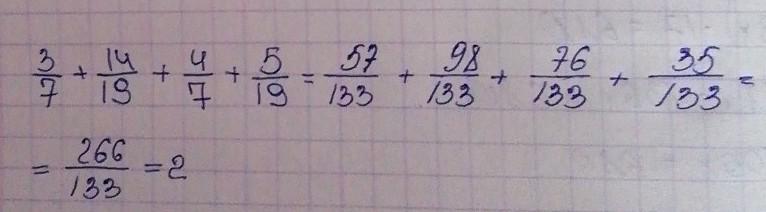 3/7 + 14/19 + 4/7 + 5/19 = 57/133 + 98/133 + 76/133 + 35/133 =
= 266/133 = 2